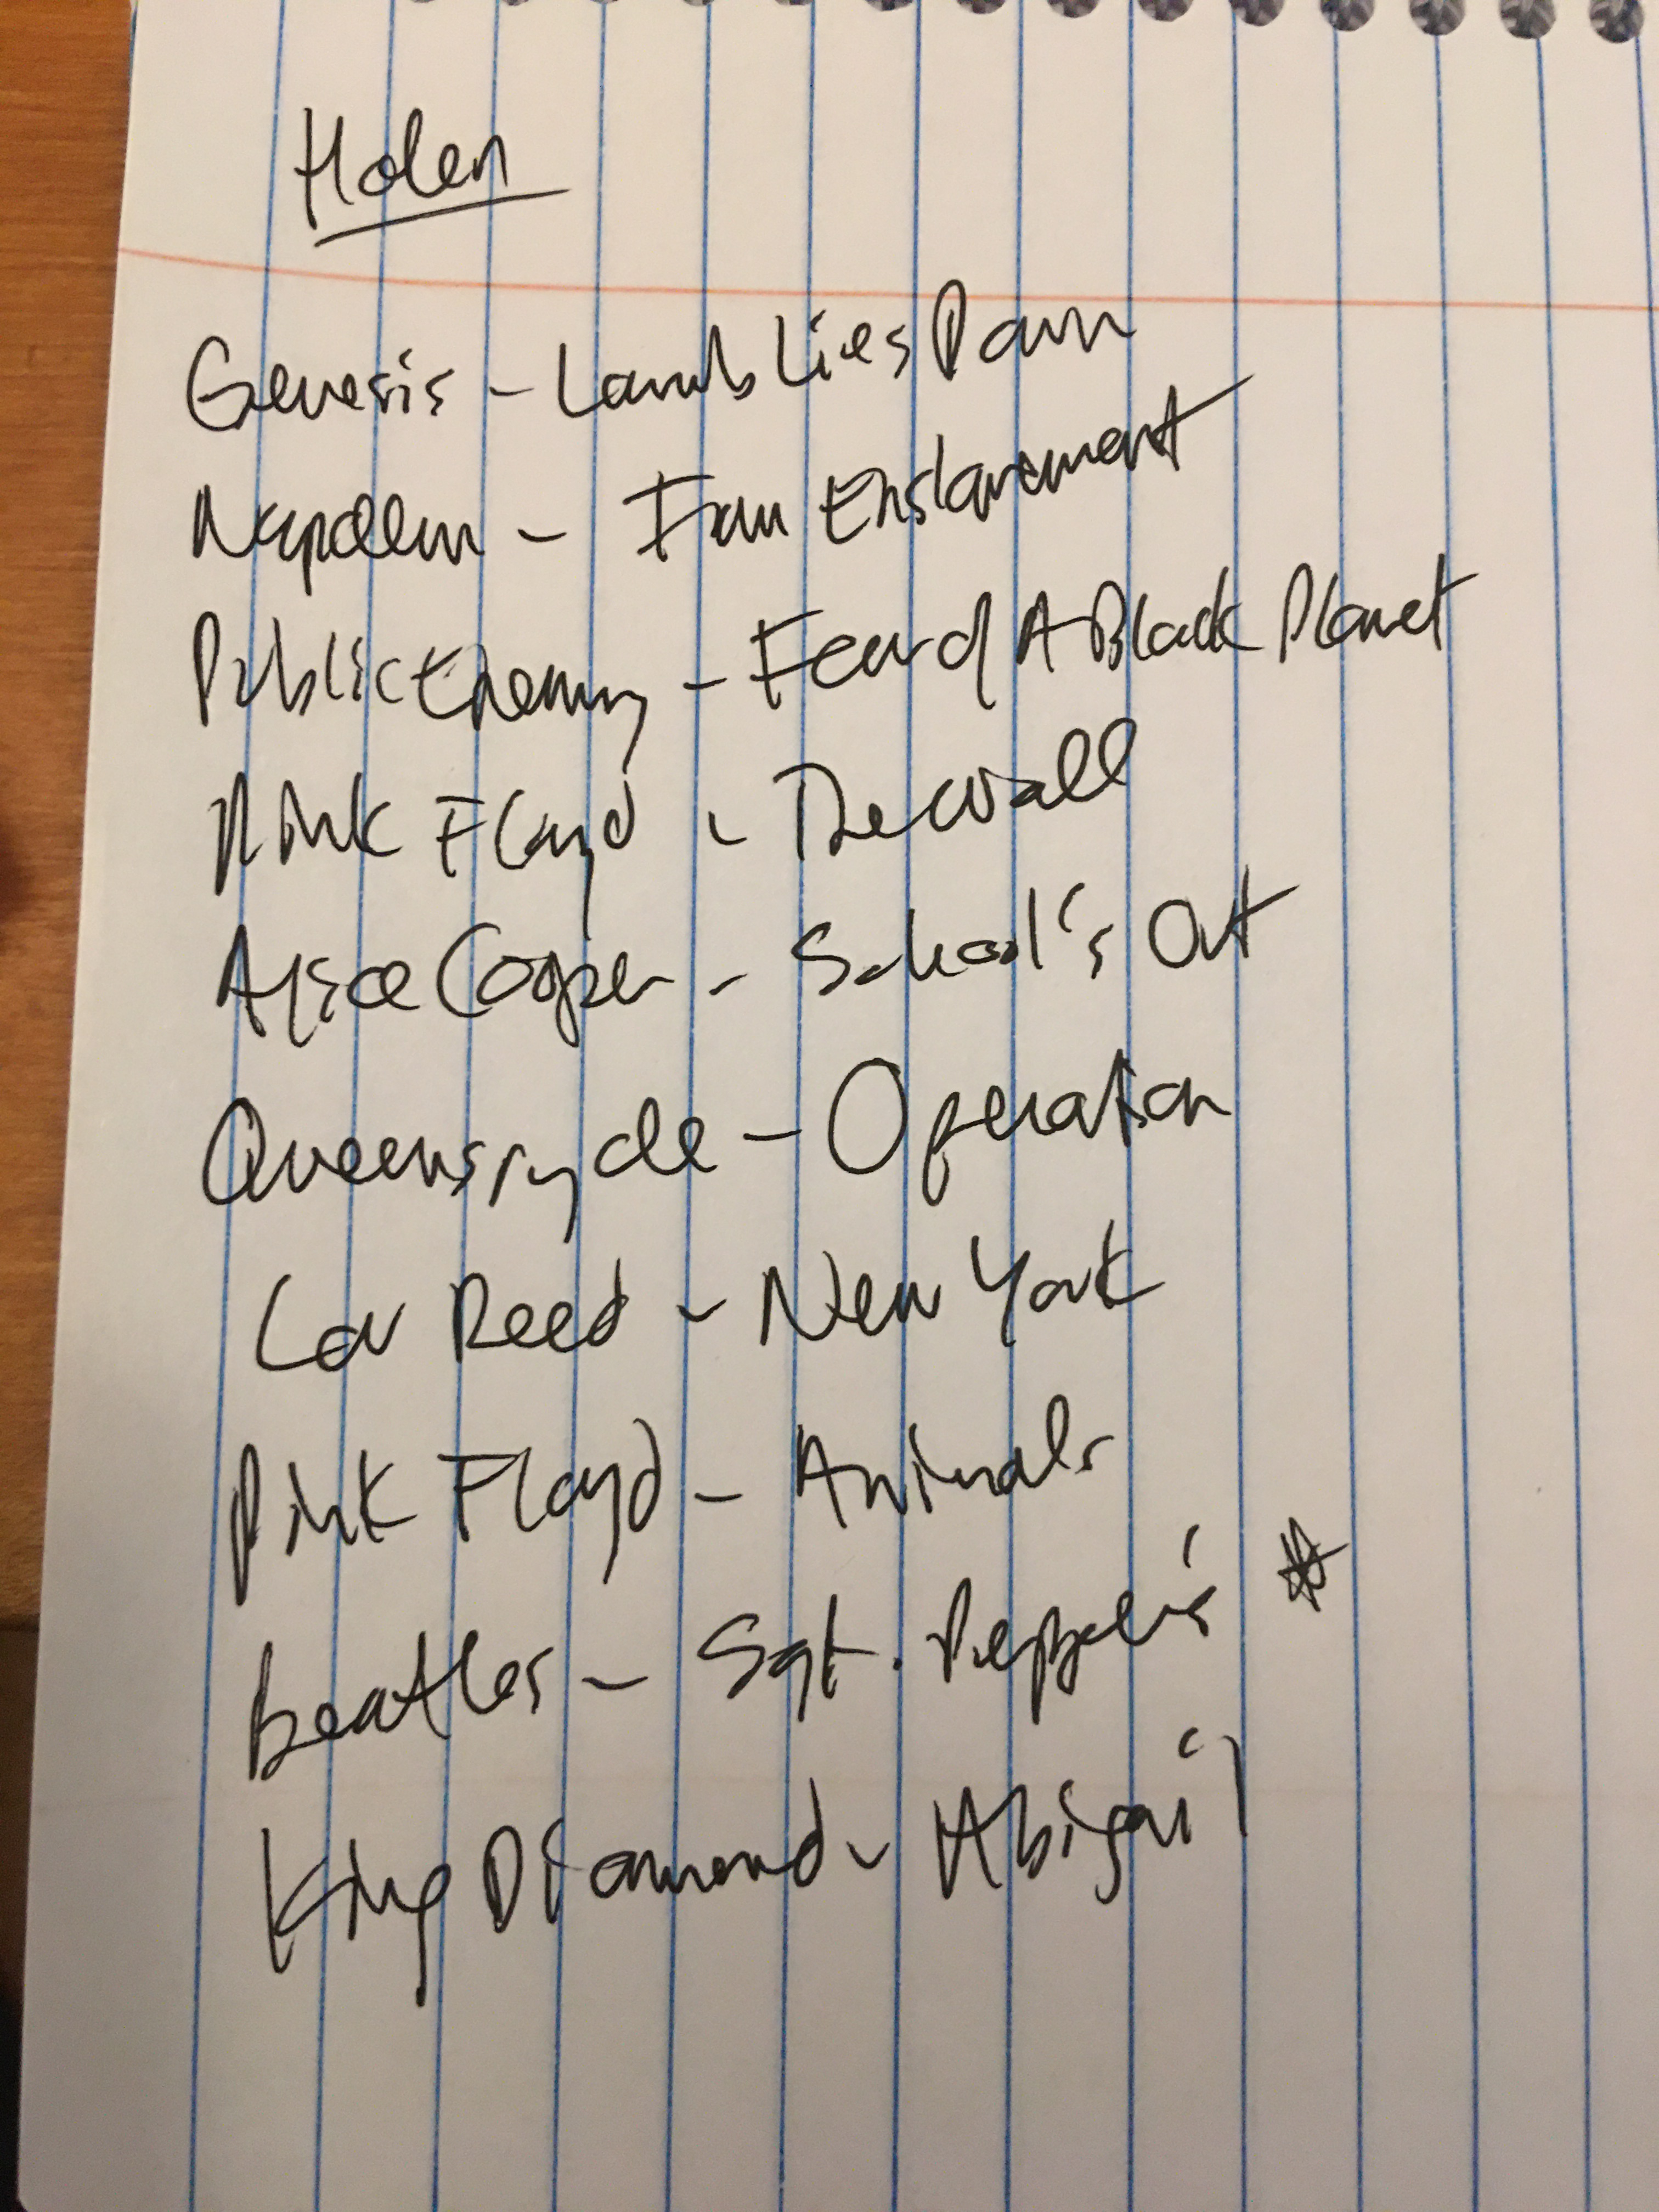 Holen
Genesis - Lamb Lies Down
Napalm - From Enslavement
Public Enemy - Fear of A Black Planet
Pink Floyd - The Wall
Alice Cooper - School's Out
Queensryche - Operation
Lou Reed - New York
Pink Floyd - Animals
Beatles - Sgt. Pepper's ☆
King Diamond - Abigail